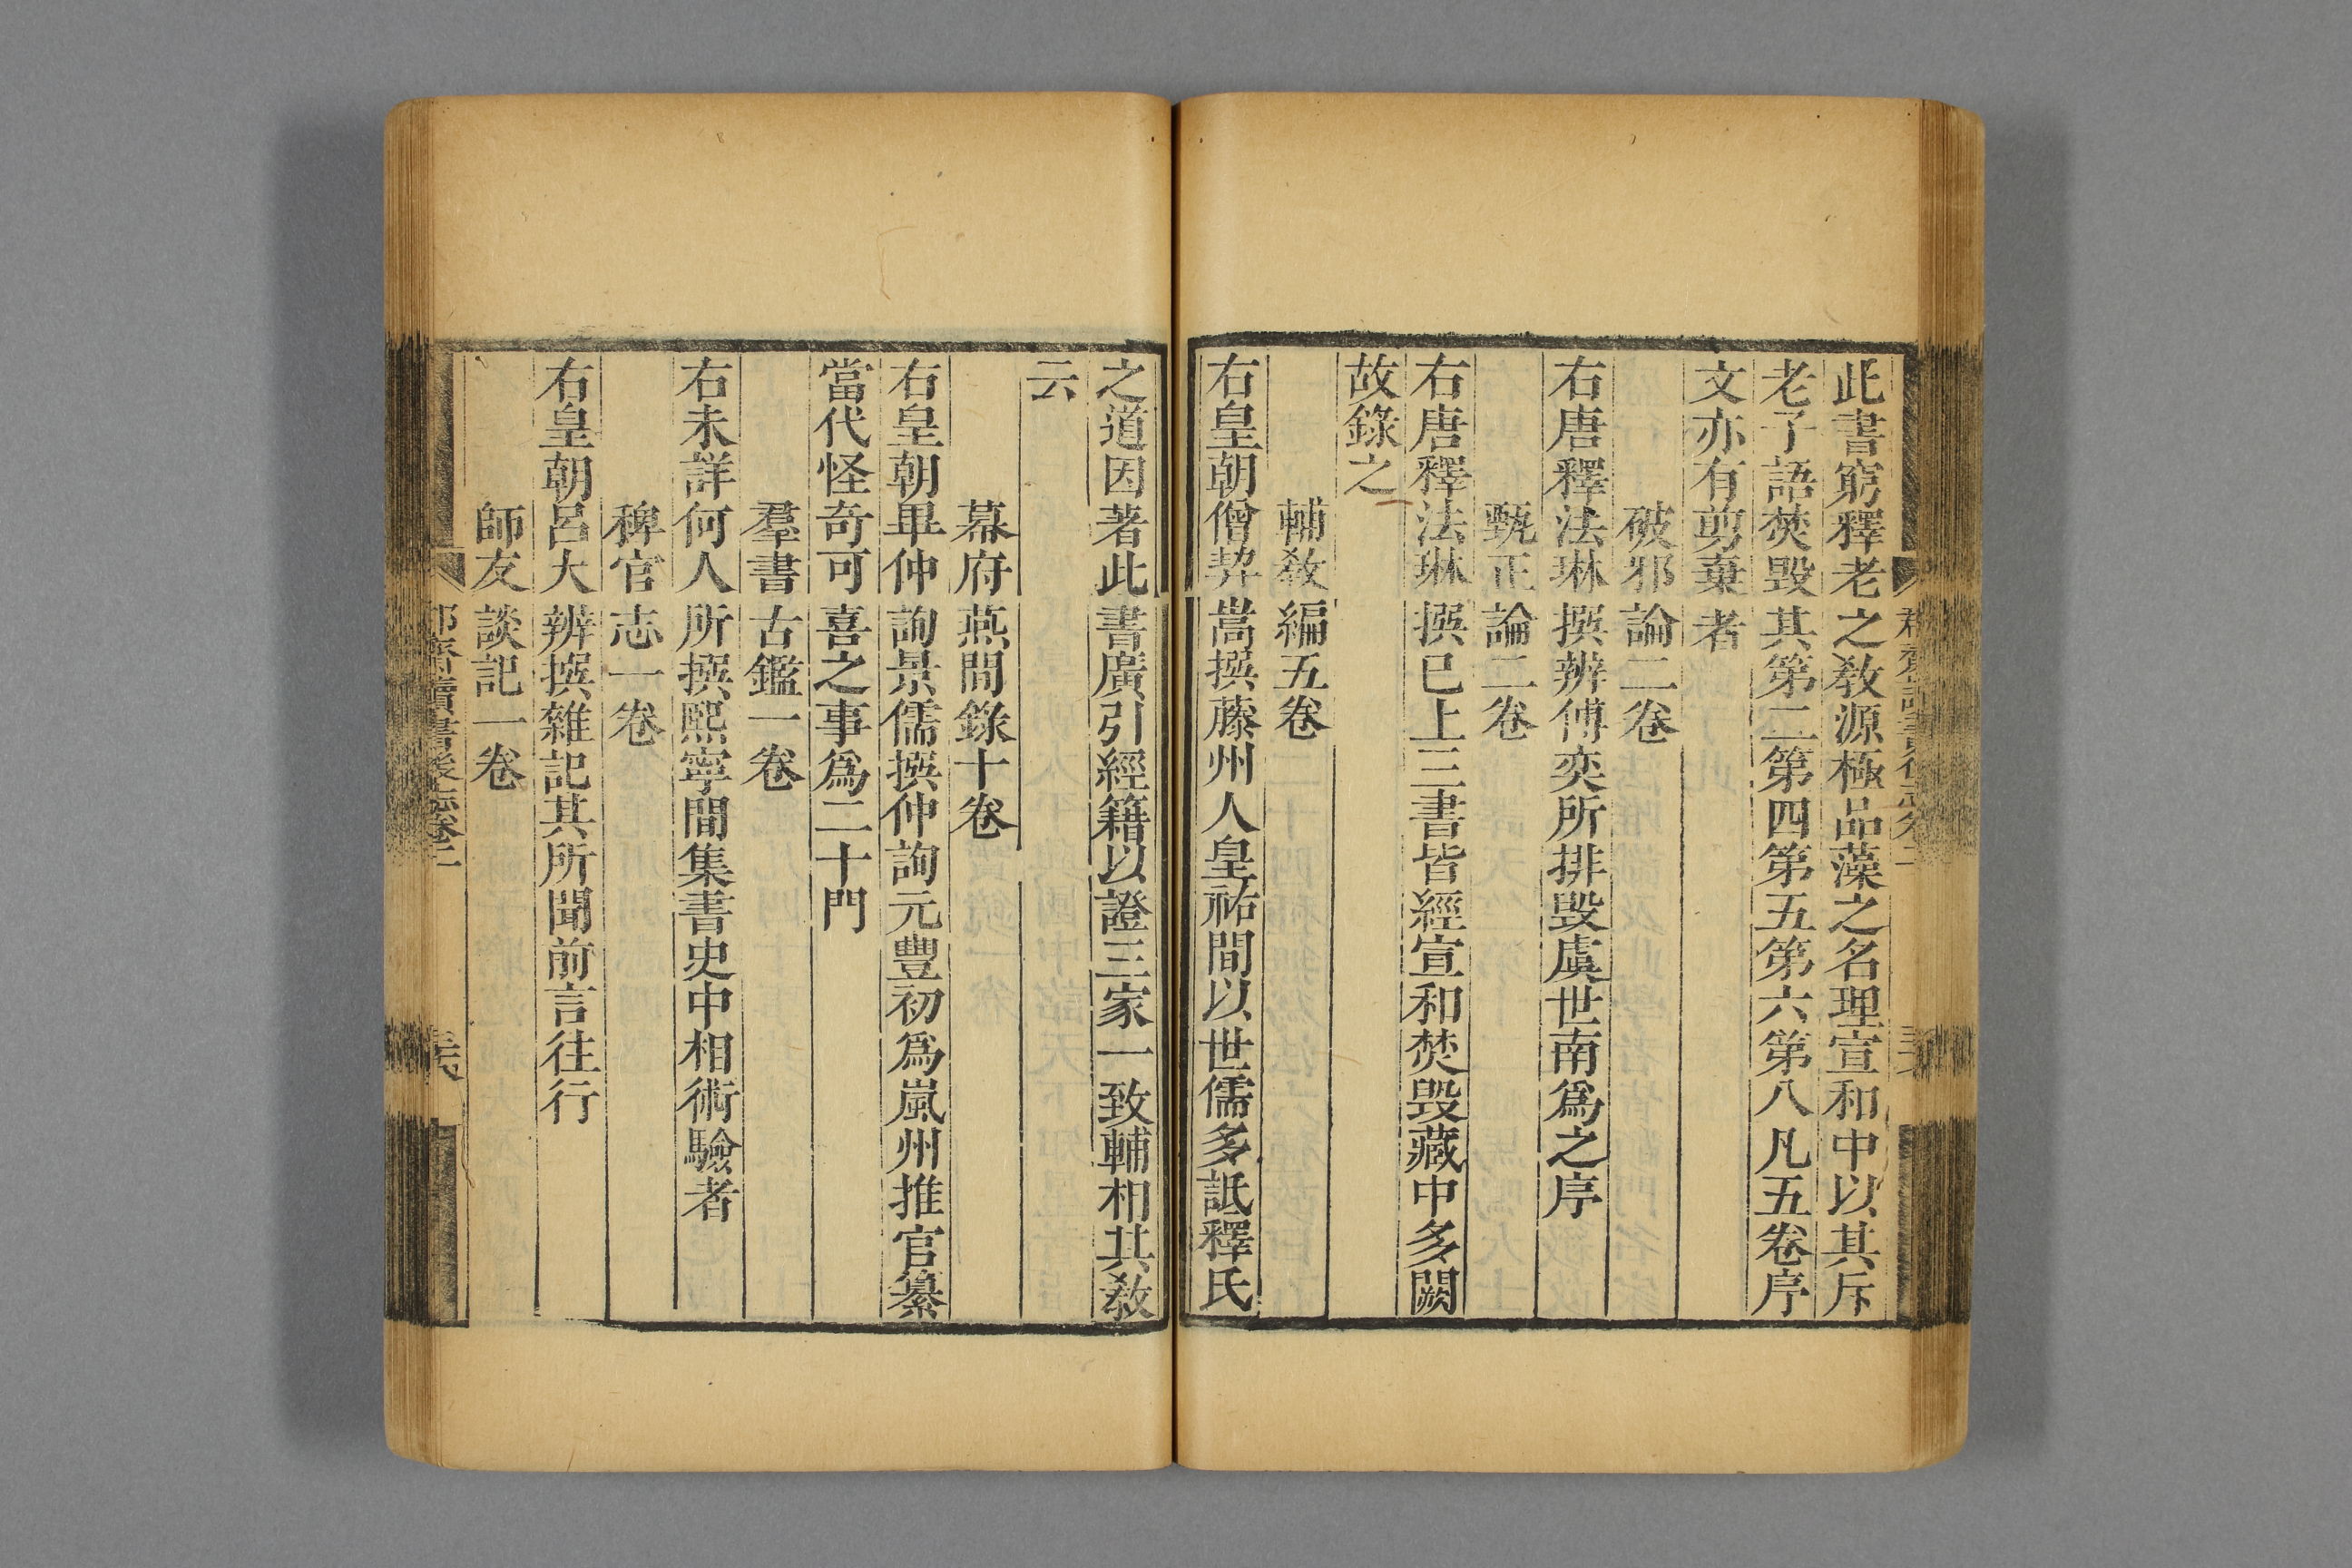 此書窮釋老之敎源極品藻之名理宣和中以其斥
老子語焚毀其第二第四第五第六第八凡五卷序
文亦有剪棄者
破邪論二卷
右唐釋法琳撰辨傅奕所排毀虞世南爲之序
甄正論二卷
右唐釋法琳撰已上三書皆經宣和焚毀藏中多闕
故錄之
輔敎編五卷
右皇朝僧契嵩撰藤州人皇祐間以世儒多詆釋氏
之道因著此書廣引經籍以證三家一致輔相其敎
云
幕府燕閒錄十卷
右皇朝畢仲詢景儒撰仲詢元豐初爲嵐州推官纂
當代怪奇可喜之事爲二十門
羣書古鑑一卷
右未詳何人所撰熙寧間集書史中相術驗者
稗官志一卷
右皇朝呂大辨撰雜記其所聞前言往行
師友談記一卷
讀書後志卷二